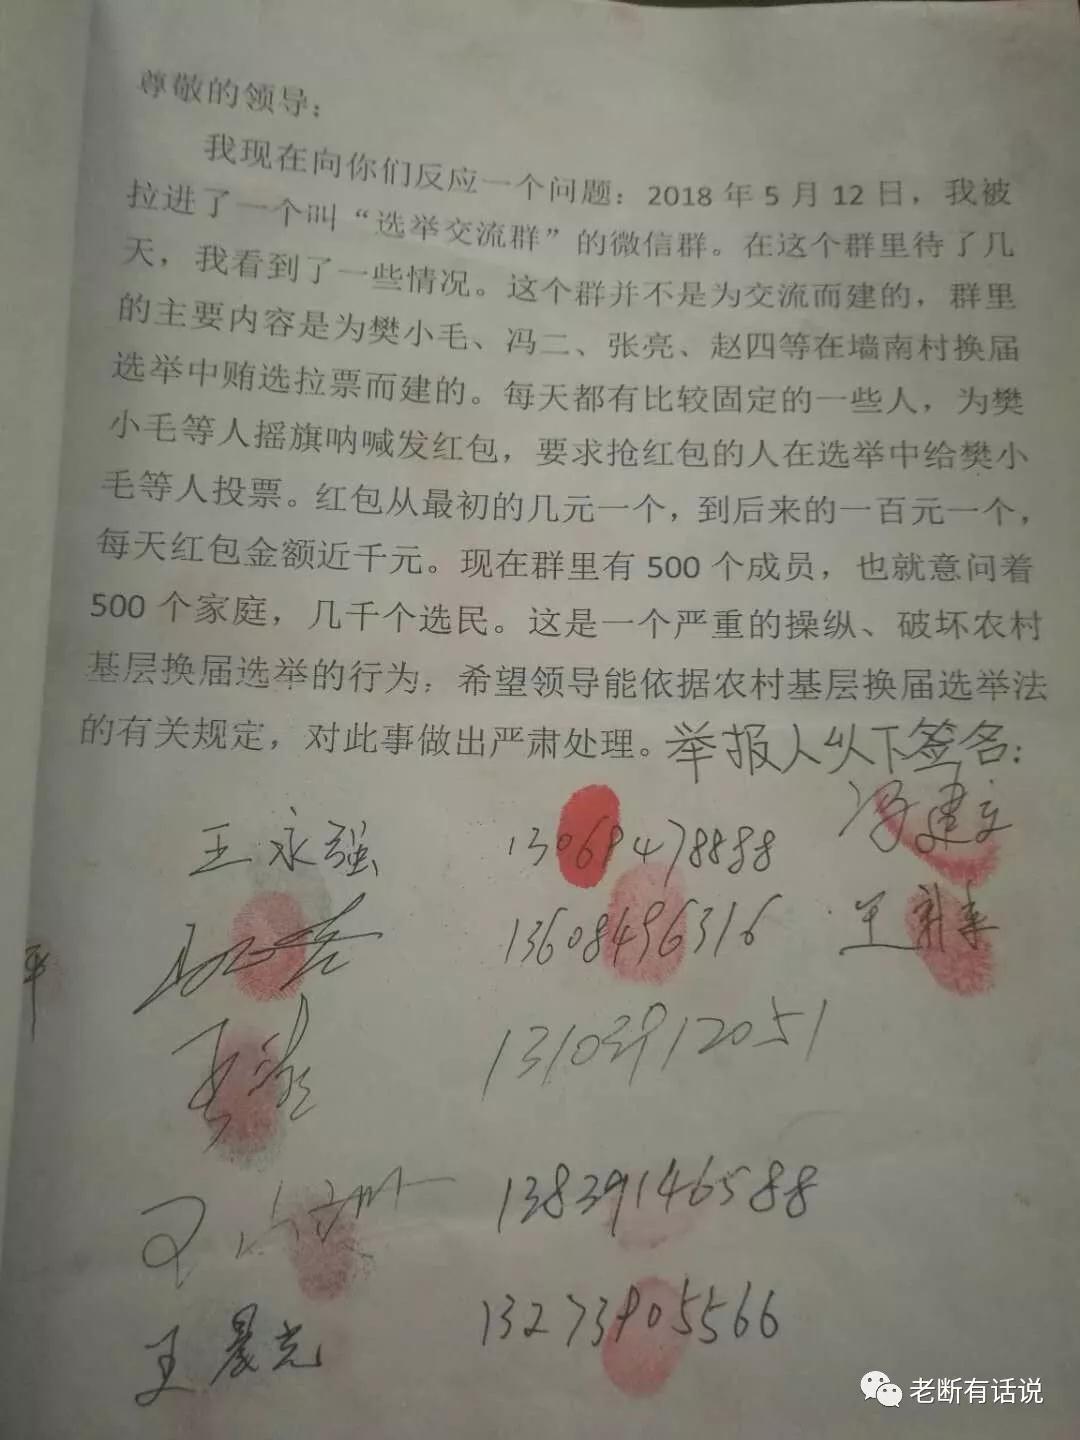 尊敬的领导：
我现在向你们反应一个问题：2018年5月12日，我被
拉进了一个叫“选举交流群”的微信群。在这个群里待了几
天，我看到了一些情况。这个群并不是为交流而建的，群里
的主要内容是为樊小毛、冯二、张亮、赵四等在墙南村换届
选举中贿选拉票而建的。每天都有比较固定的一些人，为樊
小毛等人摇旗呐喊发红包，要求抢红包的人在选举中给樊小
毛等人投票。红包从最初的几元一个，到后来的一百元一个，
每天红包金额近千元。现在群里有500个成员，也就意问着
500个家庭，几千个选民。这是一个严重的操纵、破坏农村
基层换届选举的行为；希望领导能依据农村基层换届选举法
的有关规定，对此事做出严肃处理。举报人以下签名：
王永强 13068478888 冯建立
13608496316 王新春
13103912051
13839146588
王晨光 13273905566
老断有话说